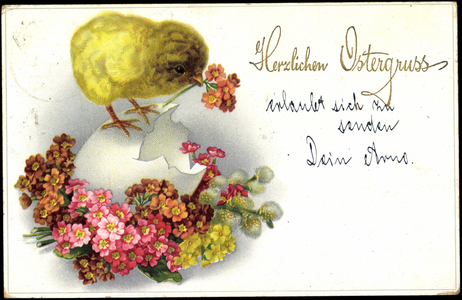 Herzlichen Ostergruss
erlaubt sich zu
senden
Dein Arno.